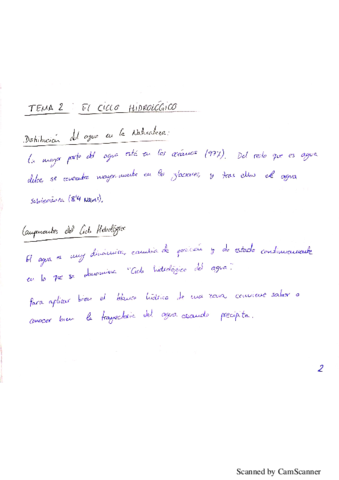 TEMA 2 : EL CICLO HIDROLÓGICO
Distribución del agua en la Naturaleza:
La mayor parte del agua está en los océanos (97%). Del resto que es agua
dulce se encuentra mayormente en los glaciares, y tras ellos el agua
subterránea
Componentes del Ciclo Hidrológico
El agua es muy dinámica, cambia de posición y de estado continuamente
en lo que se denomina "Ciclo hidrológico del agua".
Para aplicar bien el balance hídrico de una zona conviene saber o
conocer bien la trayectoria del agua cuando precipita.
2
Scanned by CamScanner